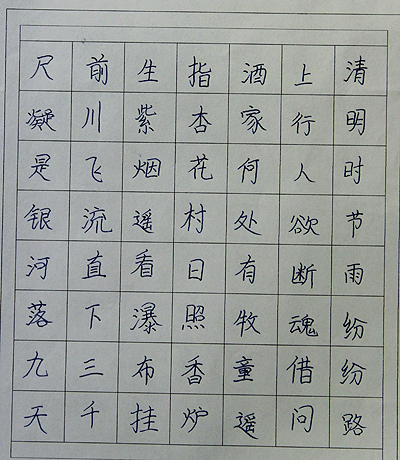 清明时节雨纷纷路
上行人欲断魂借问
酒家何处有牧童遥
指杏花村日照香炉
生紫烟遥看瀑布挂
前川飞流直下三千
尺凝是银河落九天